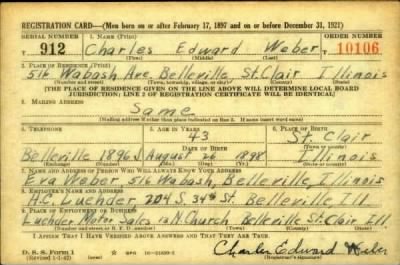 REGISTRATION CARD—(Men born on or after February 17, 1897 and on or before December 31, 1921)
SERIAL NUMBER 1. NAME (Print) ORDER NUMBER
T 912 Charles Edward Weber 10106
(First) (Middle) (Last)
2. PLACE OF RESIDENCE (Print)
516 Wabash Ave. Belleville St. Clair Illinois
(Number and street) (Town, township, village, or city) (County) (State)
[THE PLACE OF RESIDENCE GIVEN ON THE LINE ABOVE WILL DETERMINE LOCAL BOARD
JURISDICTION; LINE 2 OF REGISTRATION CERTIFICATE WILL BE IDENTICAL]
3. MAILING ADDRESS
Same
[Mailing address if other than place indicated on line 2. If same insert word same]
4. TELEPHONE 5. AGE IN YEARS 6. PLACE OF BIRTH
43 St. Clair
DATE OF BIRTH
Belleville 1896 J August 26 1898 Illinois
(Exchange) (Number) (Mo.) (Day) (Yr.) (State or country)
7. NAME AND ADDRESS OF PERSON WHO WILL ALWAYS KNOW YOUR ADDRESS
Eva Weber 516 Wabash, Belleville, Illinois
8. EMPLOYER'S NAME AND ADDRESS
H.C. Luehder, 204 S. 34th St. Belleville, Ill.
9. PLACE OF EMPLOYMENT OR BUSINESS
Luehder Motor Sales 13 N. Church Belleville St. Clair Ill
(Number and street or R. F. D. number) (Town) (County) (State)
I AFFIRM THAT I HAVE VERIFIED ABOVE ANSWERS AND THAT THEY ARE TRUE.
D. S. S. Form 1
(Revised 1-1-42) (over)
Charles Edward Weber